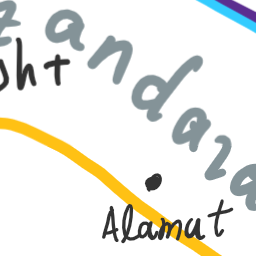 zandara
sht
Alamut